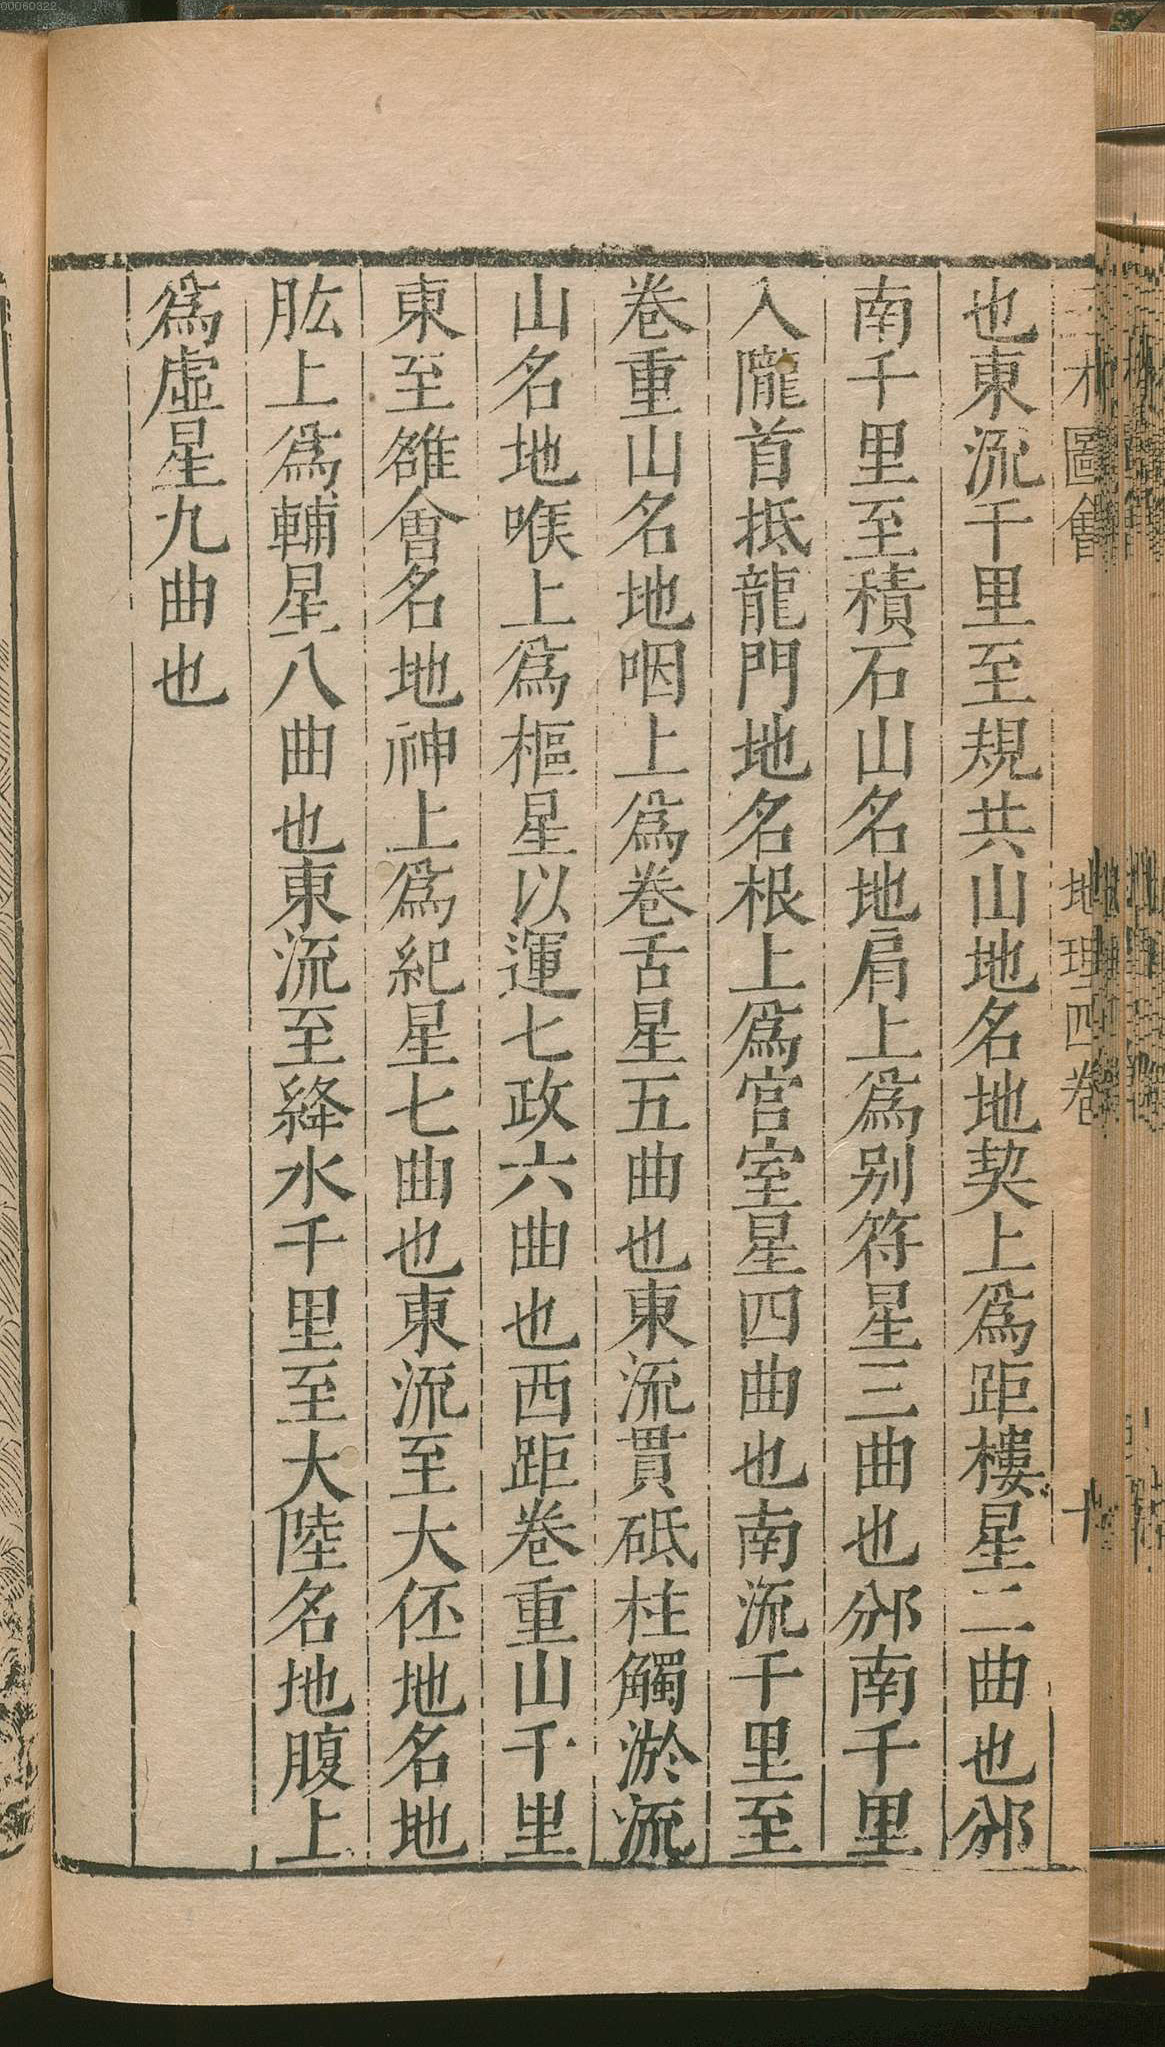 00060322
三才圖會
地理四卷
十
也東流千里至規共山地名地契上爲距樓星二曲也邠
南千里至積石山名地肩上爲别符星三曲也邠南千里
入隴首抵龍門地名根上爲官室星四曲也南流千里至
卷重山名地咽上爲卷舌星五曲也東流貫砥柱觸淤流
山名地喉上爲樞星以運七政六曲也西距卷重山千里
東至雒會名地神上爲紀星七曲也東流至大伾地名地
肱上爲輔星八曲也東流至絳水千里至大陸名地腹上
爲虛星九曲也